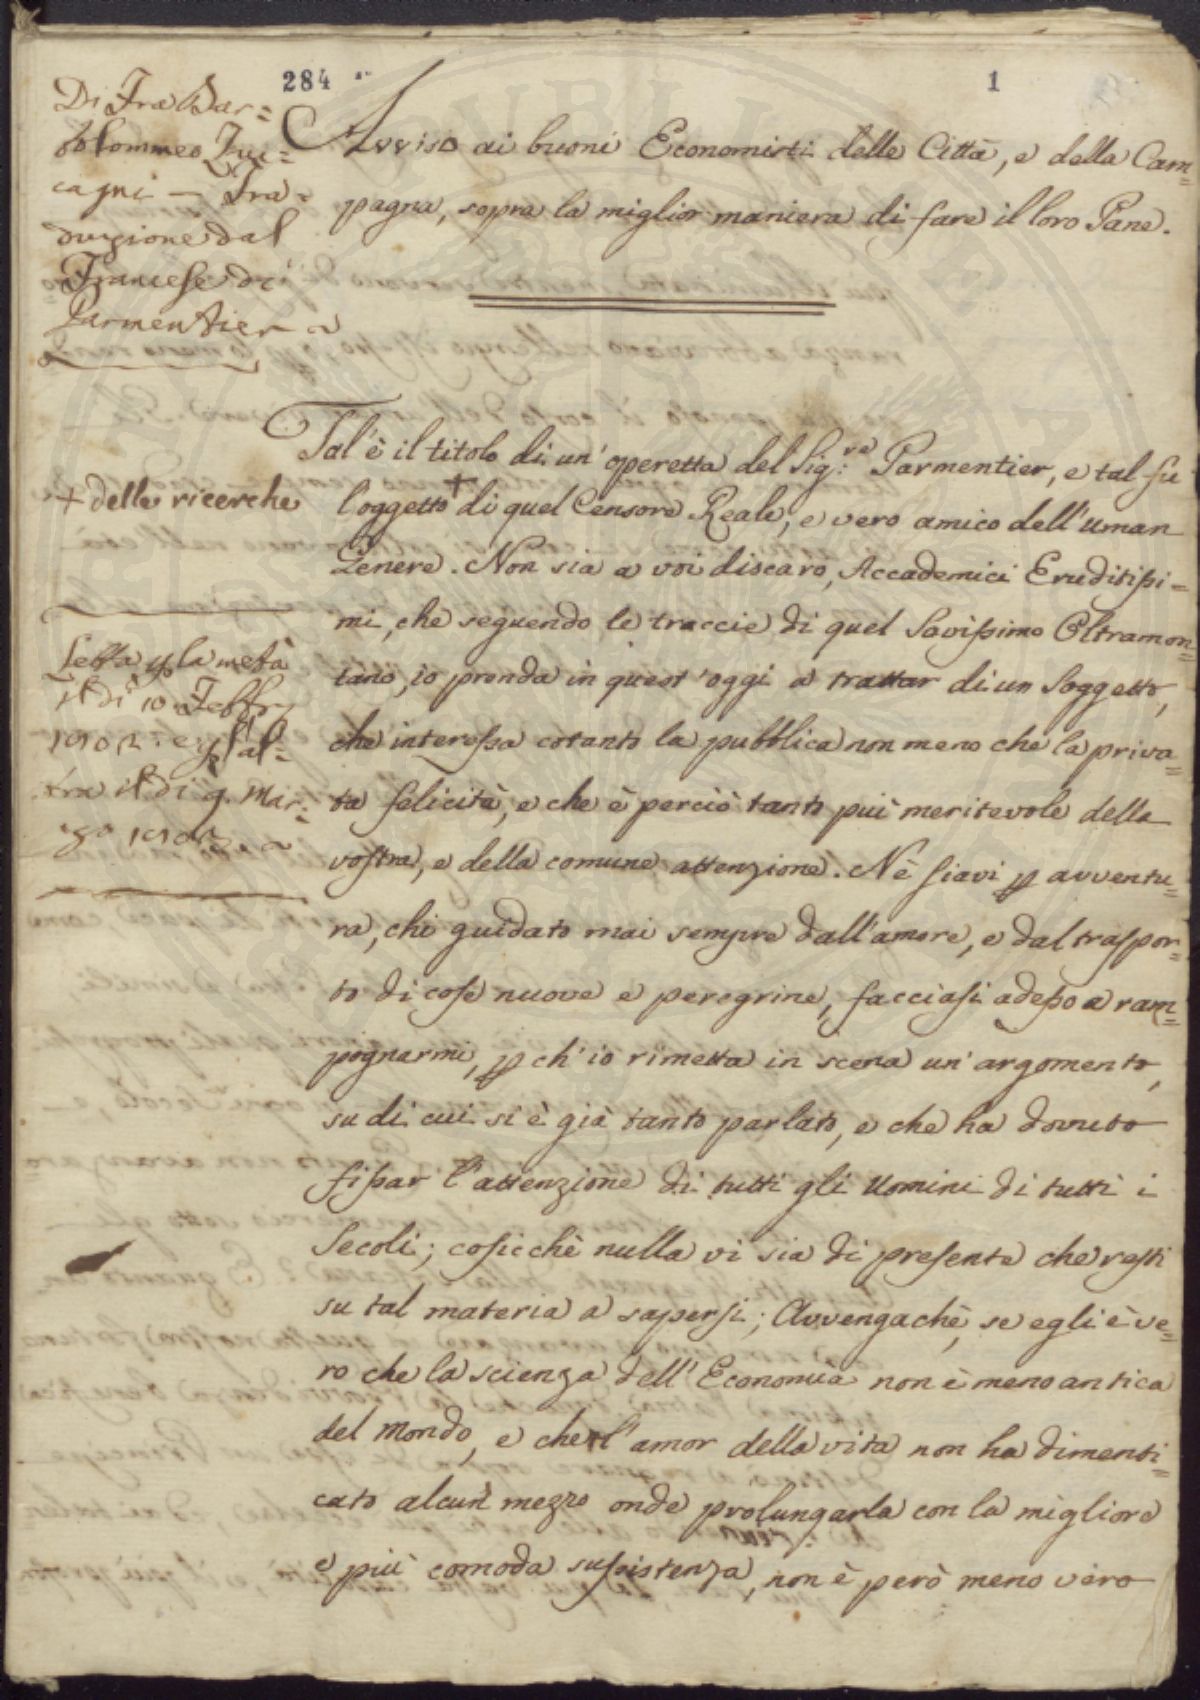 284
1
Di Fra Bar=
tolommeo Zuc=
cagni — Tra=
duzione dal
Francese di
Parmentier
Avviso ai buoni Economisti delle Città, e della Cam=
pagna, sopra la miglior maniera di fare il loro Pane.
Tal'è il titolo di un'operetta del Sig.re Parmentier, e tal fu
+ delle ricerche
l'oggetto + di quel Censore Reale, e vero amico dell'uman
Genere. Non sia a voi discaro, Accademici Eruditissi=
mi, che seguendo le traccie di quel Savissimo Oltramon=
tano, io prenda in quest'oggi a trattar di un Soggetto,
che interessa cotanto la pubblica non meno che la priva=
ta felicità, e che è perciò tanto più meritevole della
vostra, e della comune attenzione. Nè siavi p avventu=
ra, chi guidato mai sempre dall'amore, e dal traspor=
to di cose nuove e peregrine, facciasi adesso a ram=
pognarmi, p ch'io rimetta in scena un'argomento,
su di cui si è già tanto parlato, e che ha dovuto
fissar l'attenzione di tutti gli Uomini di tutti i
Secoli; cosicchè nulla vi sia di presente che resti
su tal materia a sapersi; Avvengachè, se egli è ve=
ro che la scienza dell'Economia non è meno antica
del Mondo, e che l'amor della vita non ha dimenti=
cato alcun mezzo onde prolungarla con la migliore
e più comoda sussistenza, non è però meno vero
Letta p la metà
il dì 10 Febb.
e p l'al=
tra il dì 9. Mar=
zo